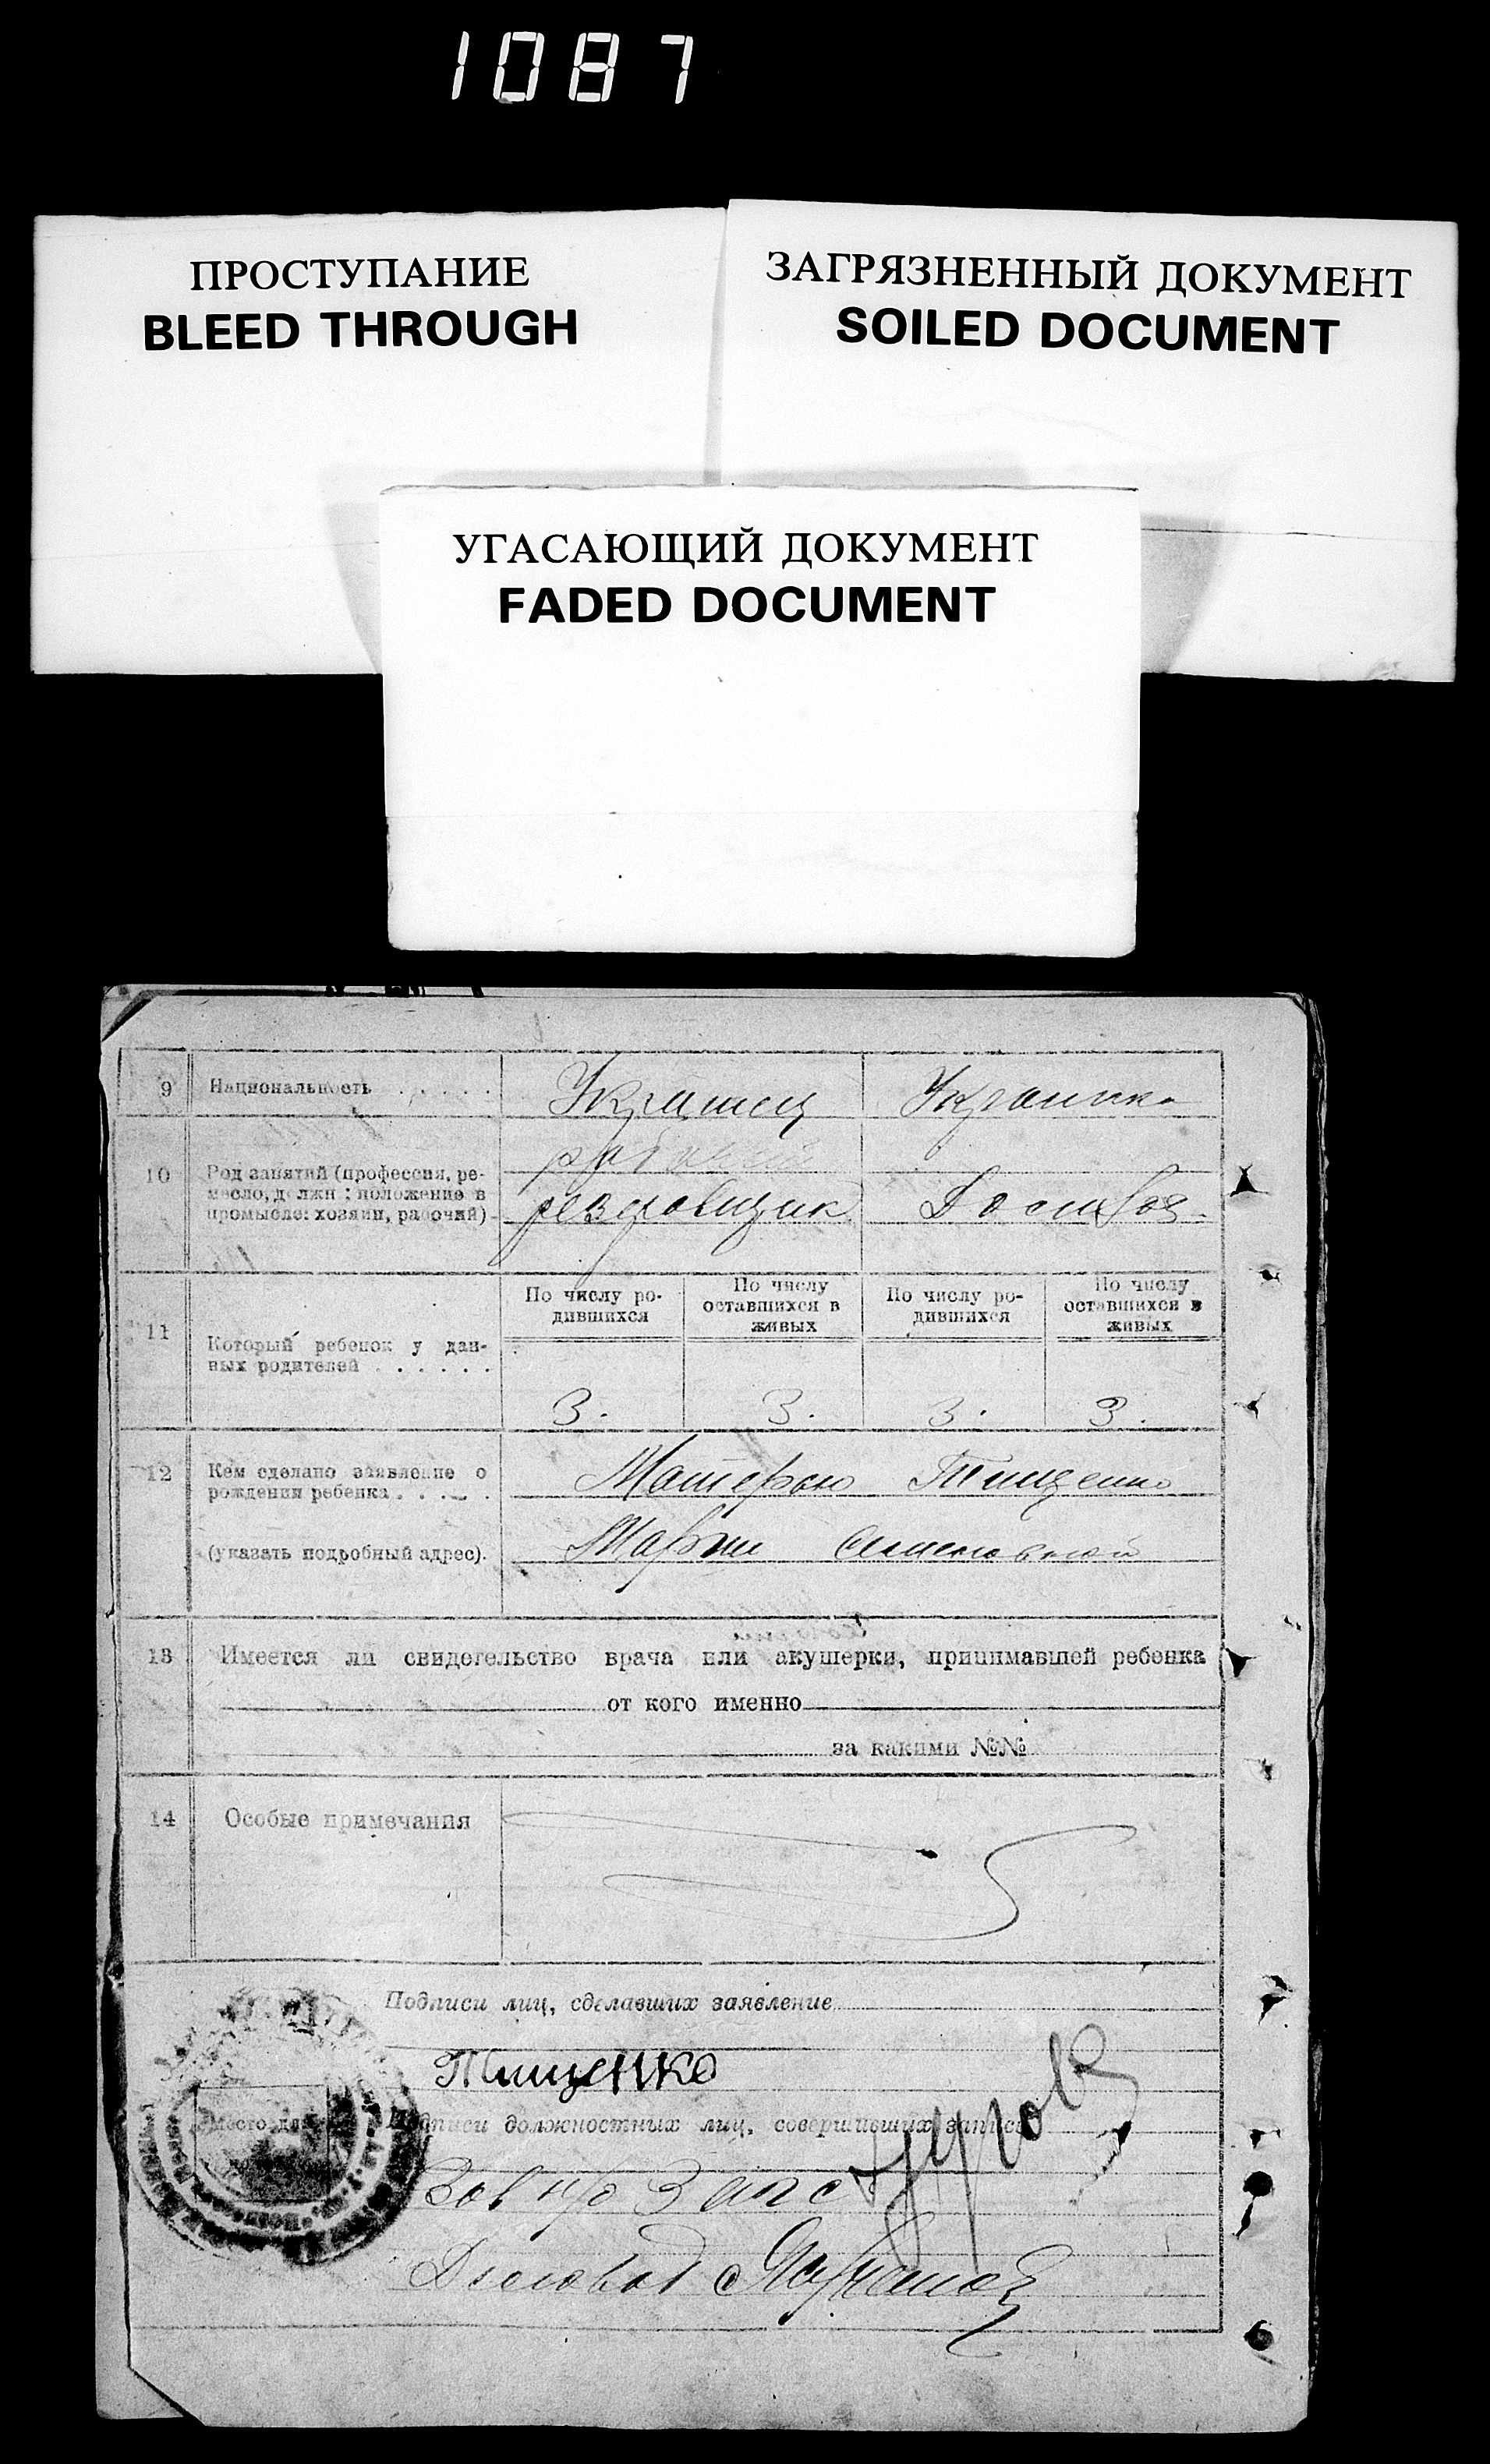 1087
ПРОСТУПАНИЕ
BLEED THROUGH
ЗАГРЯЗНЕННЫЙ ДОКУМЕНТ
SOILED DOCUMENT
УГАСАЮЩИЙ ДОКУМЕНТ
FADED DOCUMENT
9 Национальность . . . . . Украинец Украинка
10 Род занятий (профессия, ре-
месло, должн.; положение в
промысле: хозяин, рабочий)
рабочий
резчовщик Домохоз.
11 Который ребенок у дан-
ных родителей . . . . . .
По числу ро-
дившихся
По числу
оставшихся в
живых
По числу ро-
дившихся
По числу
оставшихся в
живых
3. 3. 3. 3.
12 Кем сделано заявление о
рождении ребенка . . . . .
(указать подробный адрес).
Матерью Тищенко
Марии Семеновной
13 Имеется ли свидетельство врача или акушерки, принимавшей ребенка
от кого именно
за какими №№
14 Особые примечания
Подписи лиц, сделавших заявление
Тищенко
Место для
Подписи должностных лиц, совершивших запись
Зав н/о Загс
Деловод